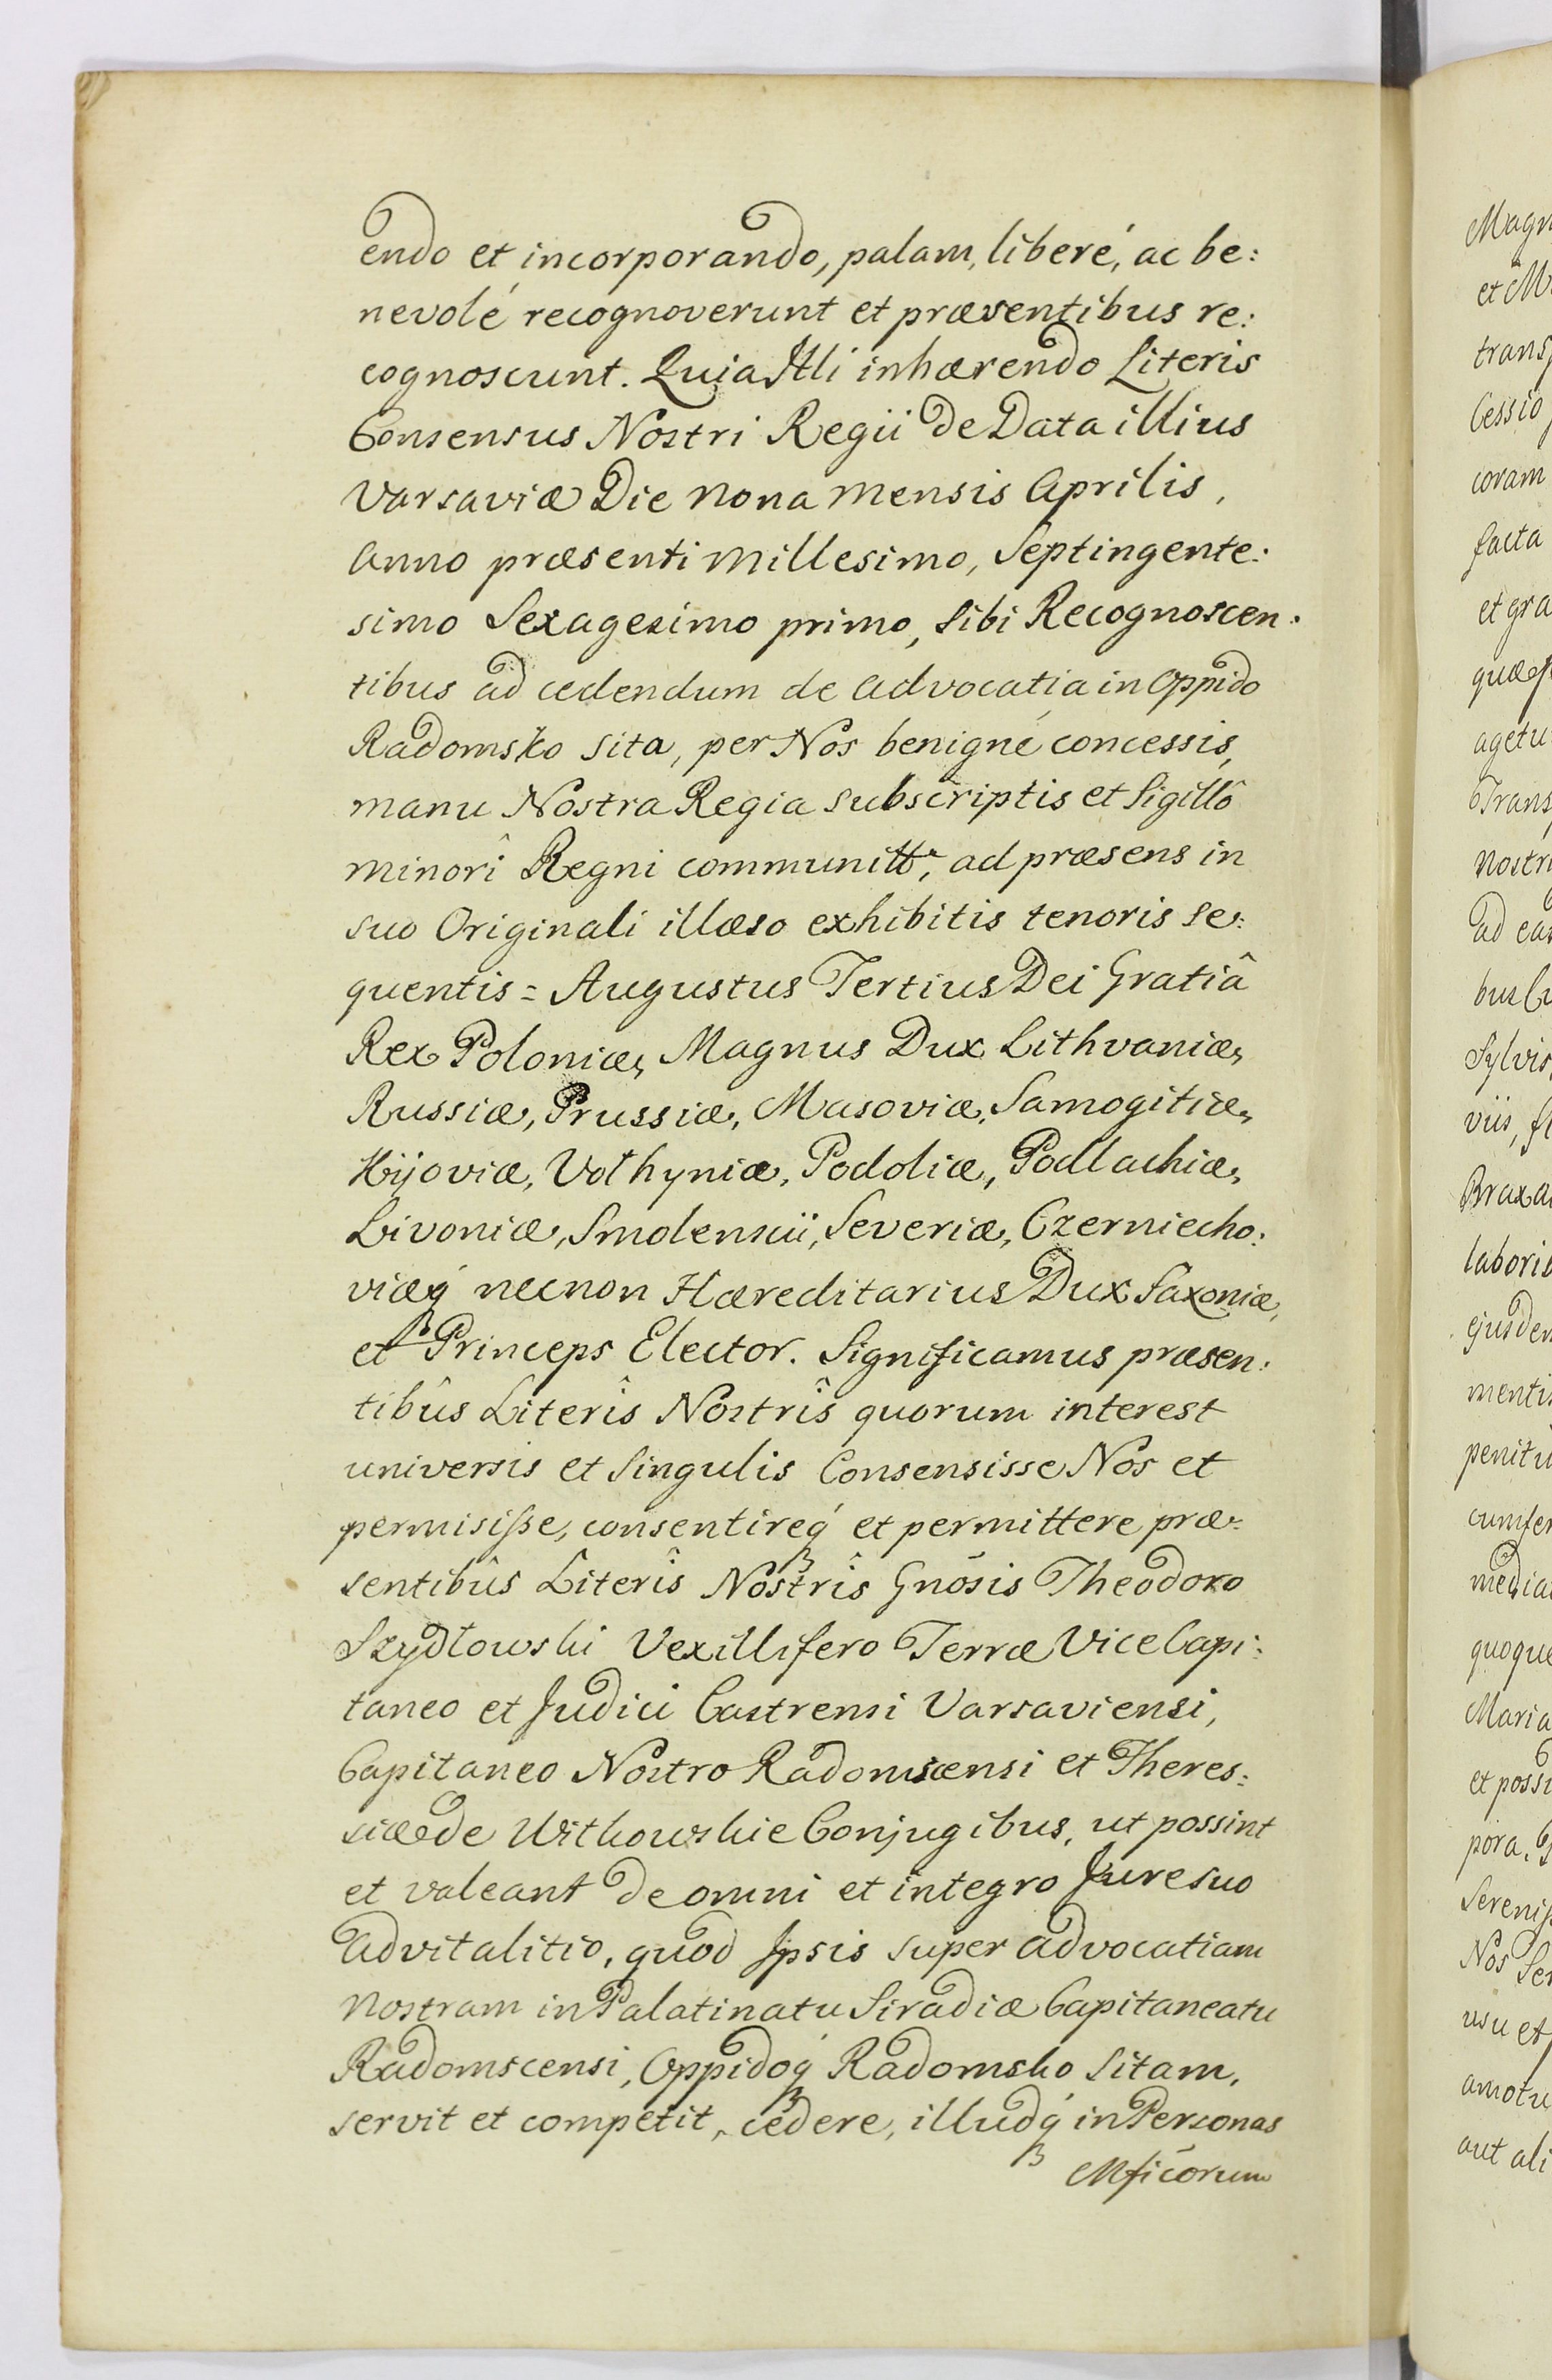 endo et incorporando, palam, liberé, ac be:
nevolé recognoverunt et præsentibus re:
cognoscunt. Quia Illi inhærendo Literis
Consensus Nostri Regii de Data illius
Varsaviæ Die nona mensis Aprilis,
Anno præsenti millesimo, Septingente:
simo Sexagesimo primo, sibi Recognoscen:
tibus ad cedendum de advocatia in Oppido
Radomsko sita, per Nos benigné concessis,
manu Nostra Regia subscriptis et Sigillô
minorî Regni communitt, ad præsens in
suo Originali illæso exhibitis tenoris se:
quentis = Augustus Tertius Dei Gratiâ
Rex Poloniæ, Magnus Dux Lithvaniæ,
Russiæ, Prussiæ, Masoviæ, Samogitiæ,
Kijoviæ, Volhyniæ, Podoliæ, Podlachiæ,
Livoniæ, Smolensciï, Severiæ, Czerniecho:
viæq́ necnon Hæreditarius Dux Saxoniæ,
et Princeps Elector. Significamus præsen:
tibûs Literîs Nostrîs quorum interest
universis et Singulis Consensisse Nos et
permisiſse, consentireq́ et permittere præ:
sentibûs Literîs Nostrîs Gnōsis Theodoro
Szydłowski Vexillifero Terræ Vice Capi:
taneo et Judici Castrensi Varsaviensi,
Capitaneo Nostro Radomscensi et Theres:
siæ de Witkowskie Conjugibus, ut possint
et valeant de omni et integro Jure suo
Advitalitio, quod Ipsis super advocatiam
Nostram in Palatinatu Siradiæ Capitaneatu
Radomscensi, Oppidoq́ Radomsko Sitam,
servit et competit, cedere, illudq́ in Personas
Mficōrum
Magn
et M
trans
Cessio
coram
facta
et gra
quæ
agetu
Trans
Nostri
ad ea
bus
Sylvis,
viis,
Braxa
labori
ejusdem
menti
penitu
cum
media
quoque
Maria
et possi
pora.
Sereni
Nos Se
usu et
amotu
aut ali